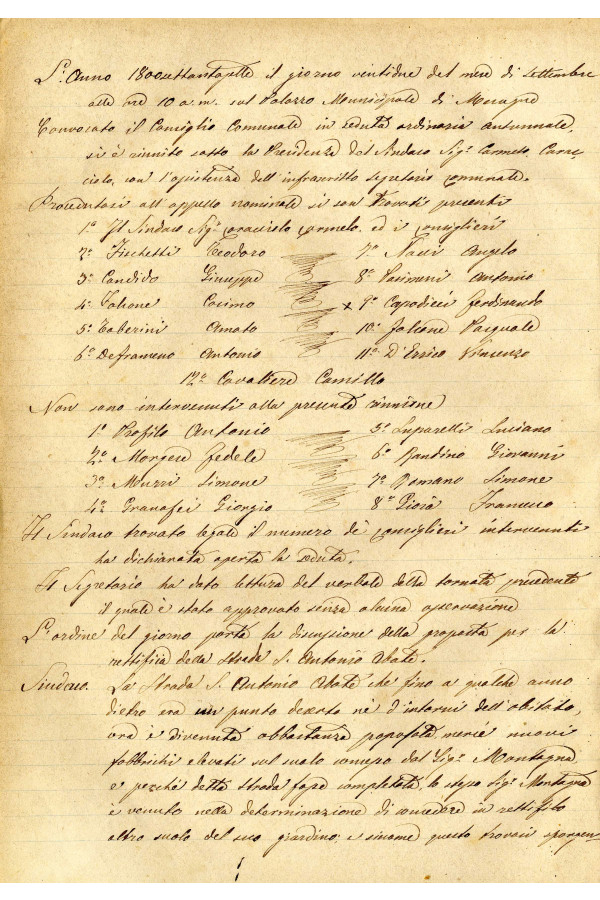 L'Anno 1800settantasette il giorno ventidue del mese di Settembre
alle ore 10 a.m. sul Palazzo Municipale di Mesagne
Convocato il Consiglio Comunale in seduta ordinaria autunnale,
si è riunito sotto la Presidenza del Sindaco Sigr Carmelo Carac-
ciolo, con l'assistenza dell'infrascritto Segretario comunale.
Procedutosi all'appello nominale si son trovati presenti
1º Il Sindaco Sigr Caracciolo Carmelo, ed i consiglieri
2º Fischetti Teodoro 7º Naci Angelo
3º Candido Giuseppe 8º Antonio
4º Falcone Cosimo x 9º Capodieci Ferdinando
5º Taberini Amato 10º Falcone Pasquale
6º Defrancesco Antonio 11º D'Errico Vincenzo
12º Cavaliere Camillo
Non sono intervenuti alla presente riunione
1º Profilo Antonio 5º Luparelli Luciano
2º Morgese Fedele 6º Pandino Giovanni
3º Muzzi Simone 7º Romano Simone
4º Granafei Giorgio 8º Francesco
Il Sindaco trovato legale il numero de' consiglieri intervenuti
ha dichiarata aperta la seduta.
Il Segretario ha dato lettura del verbale della tornata precedente
il quale è stato approvato senza alcuna osservazione
L'ordine del giorno porta la discussione della proposta per la
rettifica della strada S. Antonio Abate.
Sindaco. La Strada S. Antonio Abate che fino a qualche anno
dietro era un punto deserto ne' d'intorni dell'abitato,
ora è divenuta abbastanza popolata mercè nuovi
fabbrichi elevati sul suolo comperato dal Sigr Montagna
e perchè detta strada fosse completata lo stesso Sigr Montagna
è venuto nella determinazione di concedere in rettifilo
altro suolo del suo giardino; e siccome questo trovasi